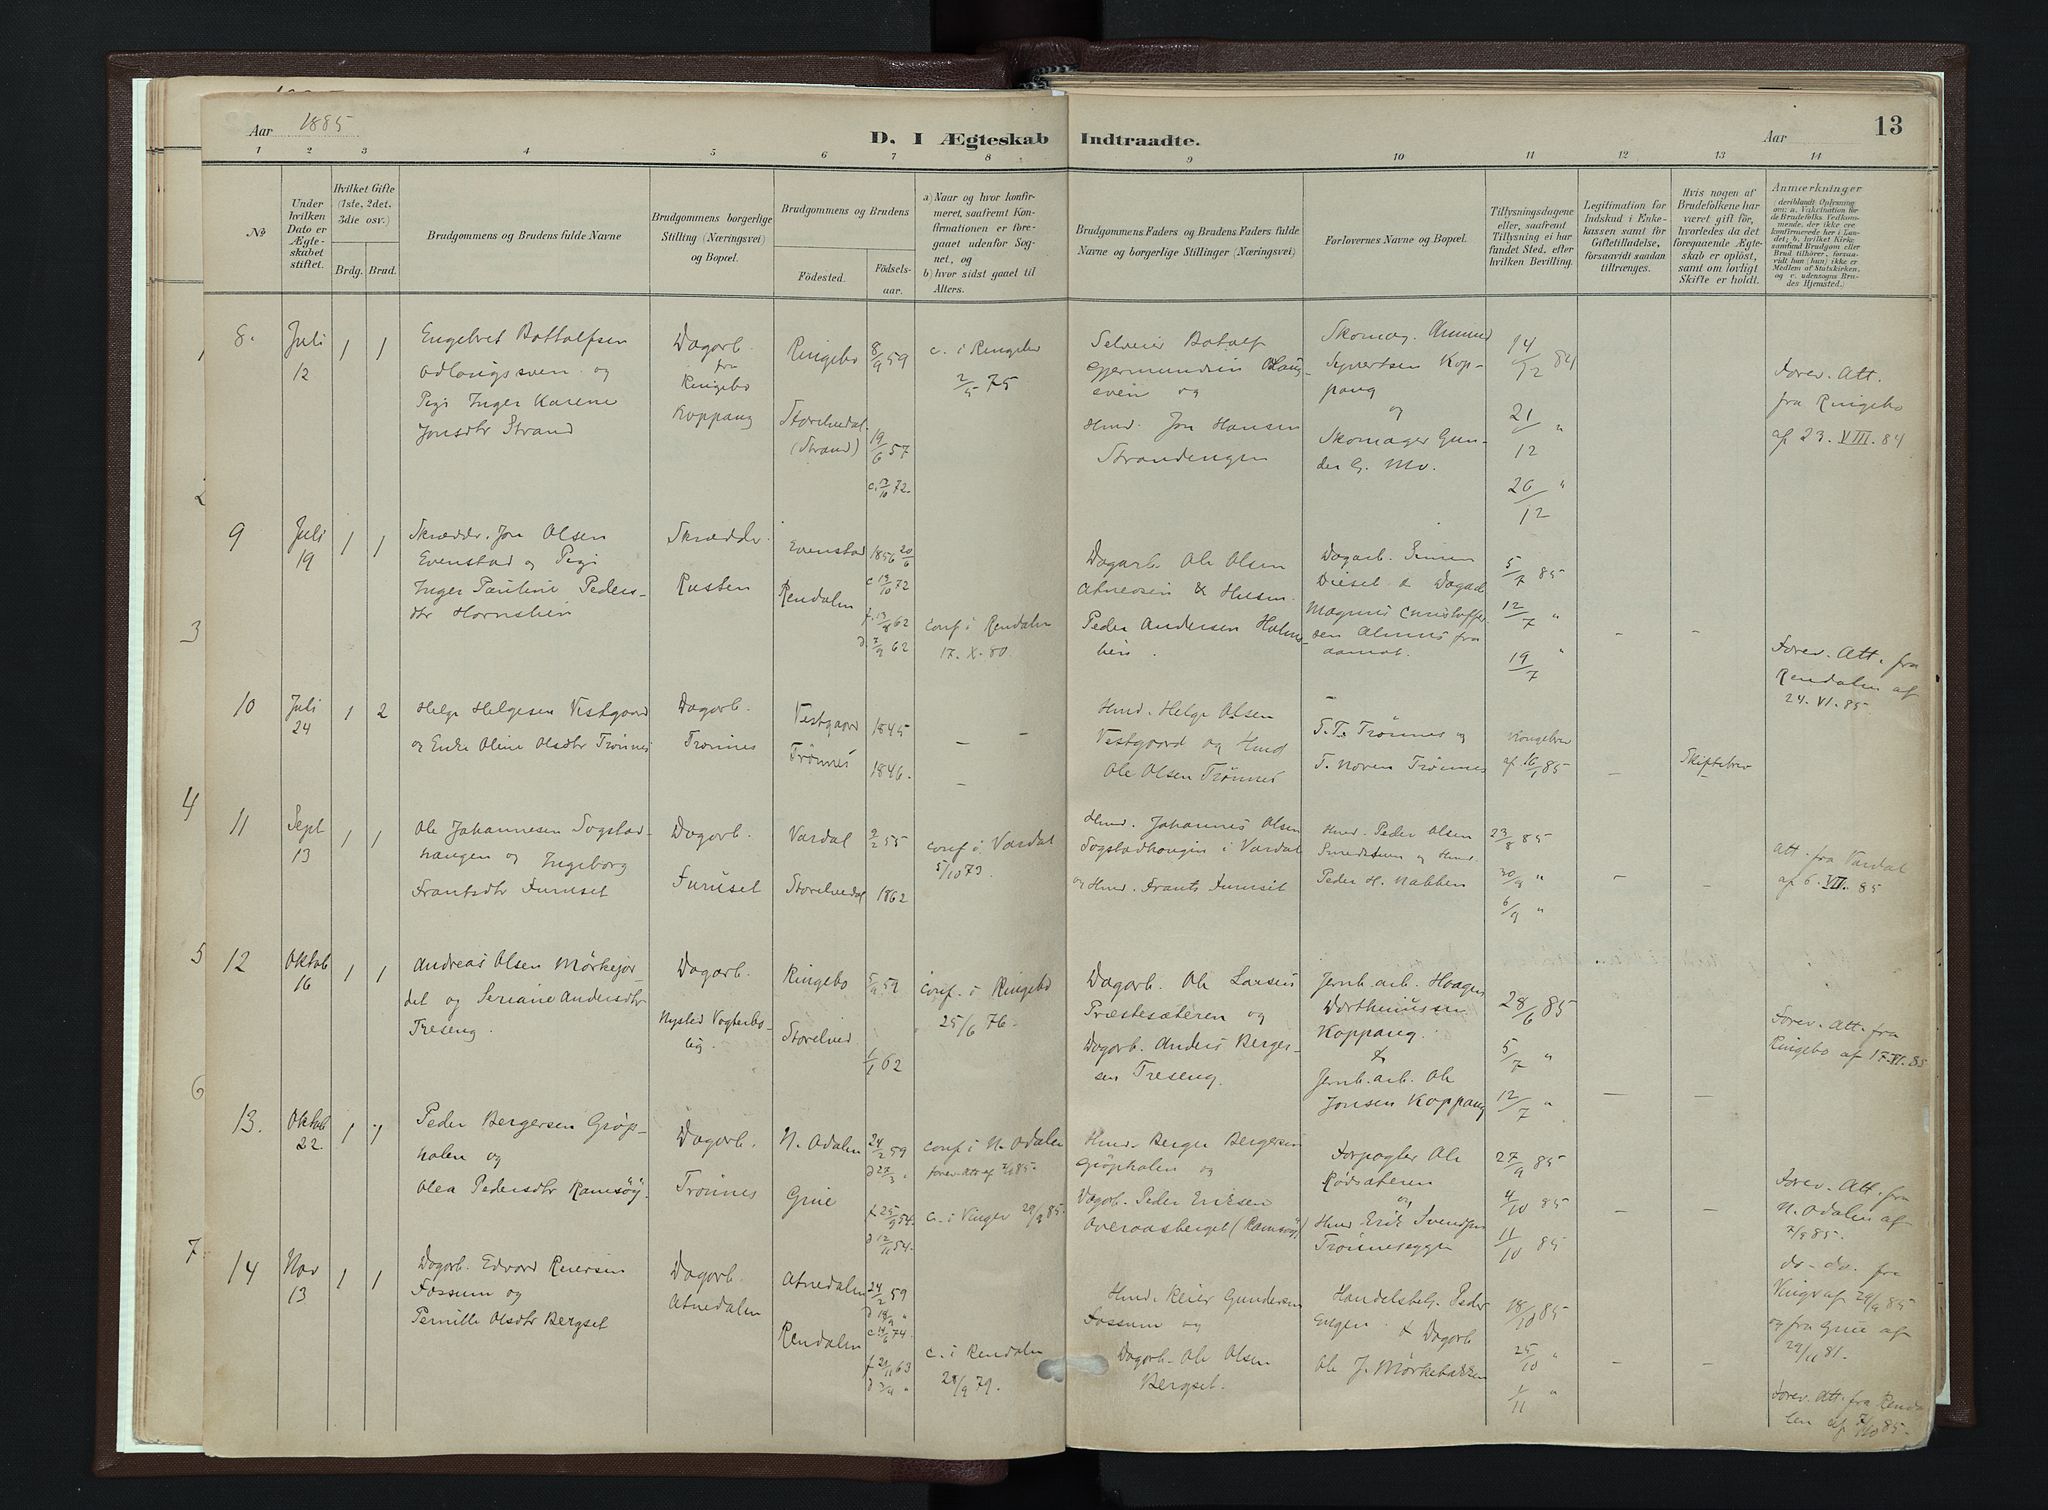 Aar 1885
D. I Ægteskab Indtraadte.
Aar
13
1 2 3 4 5 6 7 8 9 10 11 12 13 14
No
Under hvilken Dato er Ægteskabet stiftet.
Hvilket Gifte (1ste, 2det, 3die osv.)
Brdg. Brud.
Brudgommens og Brudens fulde Navne
Brudgommens borgerlige Stilling (Næringsvei) og Bopæl.
Brudgommens og Brudens
Födested.
Födsels-aar.
a) Naar og hvor konfirmeret, saafremt Konfirmationen er foregaaet udenfor Sognet, og
b) hvor sidst gaaet til Alters.
Brudgommens Faders og Brudens Faders fulde Navne og borgerlige Stillinger (Næringsvei)
Forlovernes Navne og Bopæl.
Tillysningsdagene eller, saafremt Tillysning ei har fundet Sted, efter hvilken Bevilling.
Legitimation for Indskud i Enkekassen samt för Giftetilladelse, forsaavidt saadan tiltrænges.
Hvis nogen af Brudefolkene har været gift för, hvorledes da det foregaaende Ægteskab er oplöst, samt om lovligt Skifte er holdt.
Anmærkninger
8. Juli 12
1 1
Engebret Bottolfsen
Odlaugssven og
Pige Inger Karene
Jonsdtr Strand
Dagarb.
fra
Ringebo
Koppang
Ringebo
Storelvedal
(Strand)
8/9 59
19/6 57
c. i Ringebo
2/5 75
Gjermundsen
Hmd. Jon Hansen
Strandengen
Skomag. Amund
Syvertsen Koppang
og
Skomager Gunder G. Mo.
14/12 84
21/12 "
26/12 "
Forev. Att.
fra Ringebo
af 23. VIII. 84
9 Juli 19
1 1
Skrædder Jon Olsen
Evenstad og Pige
Inger Pauline Peders-
dtr Hornstien
Skrædder
Rusten
Evenstad
Rendalen
1856 20/6
f. 13/8 62
d. 7/9 62
conf i Rendalen
17. X. 80.
Dagarb. Ole Olsen
Atneosen & Husm.
Peder Andersen
Magnus Christoffer-
sen Almus fra
aamot.
5/7 85
12/7 "
19/7 "
Forev. Att. fra
Rendalen af
24. VI. 85.
10 Juli 24
1 2
Helge Helgesen Vestgaard
og Enke Oline Olsdtr Trönnes
Dagarb.
Trönnes
Vestgaard
Trönnes
1845
1846.
Hmd. Helge Olsen
Vestgaard og Hmd
Ole Olsen Trönnes
T. T. Trönnes og
T. Noren Trönnes
Kongebrev
Skiftebrev
11 Sept 13
1 1
Ole Johannesen Sogstad-
haugen og Ingeborg
Frantsdtr Furuset
Dagarb.
Furuset
Vardal
Storelvedal
2/2 55
1862
conf i Vardal
5/10 73.
Hmd. Johannes Olsen
Sogstadhaugen i Vardal
og Hmd. Frants Furuset
Hmd. Peder Olsen
Smedstuen og Hmd
Peder H. Nabben
23/8 85
30/8 "
6/9 "
Att. fra Vardal
af 6. VII. 85
12 Oktob 16
1 1
Andreas Olsen Mörkejor-
det og Seriane Andersdtr
Treseng.
Dagarb.
Nysted Vogterbo-
lig.
Ringebo
Storelved
1/1 62
conf. i Ringebo
25/6 76.
Dagarb. Ole Larsen
Præstesæteren og
Dagarb. Anders Berger-
sen Treseng.
Jernb. arb. Haagen
Koppang.
&
Jernb. arb. Ole
Jonsen Koppang
28/6 85
5/7 "
12/7 "
Forev. Att. fra
Ringebo af 17.VI.85
13. Oktob 22.
1 1
Peder Bergersen Gröp-
halen og
Olea Pedersdtr Ramsöy.
Dagarb.
Trönnes
N. Odalen
Grue
24/2 59
f 25/9 54.
d 12/11 54.
conf i N. Odalen
c. i Vinger 29/9 85.
Hmd. Berger Bergersen
Gröphalen og
Dagarb. Peder Eriksen
Overaasberget (Ramsöy)
Forpagter Ole
Rödsæteren
og
Hmd Erik Svendsen
Trönneseggen
27/9 85
4/10 85
11/10 85
Forev. Att. fra
N. Odalen af
7/9 85.
do - do. fra
Vinger af 29/9 85
og fra Grue af
29/11 81.
14 Nov 13
1 1
Dagarb. Edvard Reiersen
Fossum og
Pernille Olsdtr Bergset
Dagarb.
Atnedalen
Atnedalen
Rendalen
24/2 59
f 21/11 63
c. i Rendalen
28/9 79.
Hmd. Reier Gundersen
Fossum og
Dagarb. Ole Olsen
Bergset.
Handelsbetj. Peder
Engen & Dagarb
Ole J. Mörkebakken
18/10 85
25/10 "
1/11 "
Forev. Att. fra Renda-
len af 7/10 85.
1
2
3
4
5
6
7